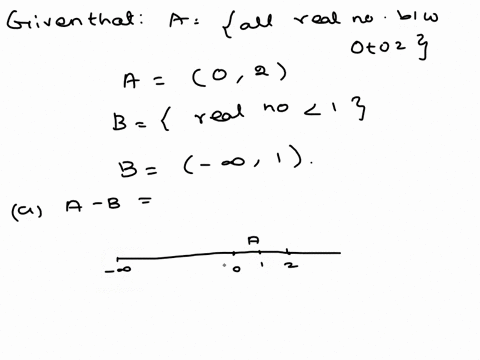 Given that: A = {all real no. b/w
0 to 2}
A = (0, 2)
B = { real no < 1 }
B = (-∞, 1).
(a) A - B =
A
-∞ 0 1 2